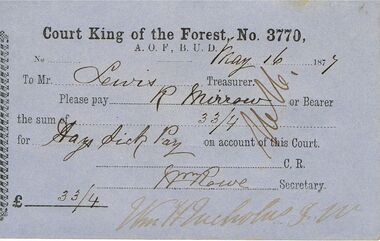 Court King of the Forest, No. 3770,
A. O. F., B. U. D.
No May 16 1877
To Mr. Lewis Treasurer.
Please pay R Mirrow or Bearer
the sum of 33/4
for Days Sick Pay on account of this Court.
C. R.
Wm Rowe Secretary.
£ 33/4